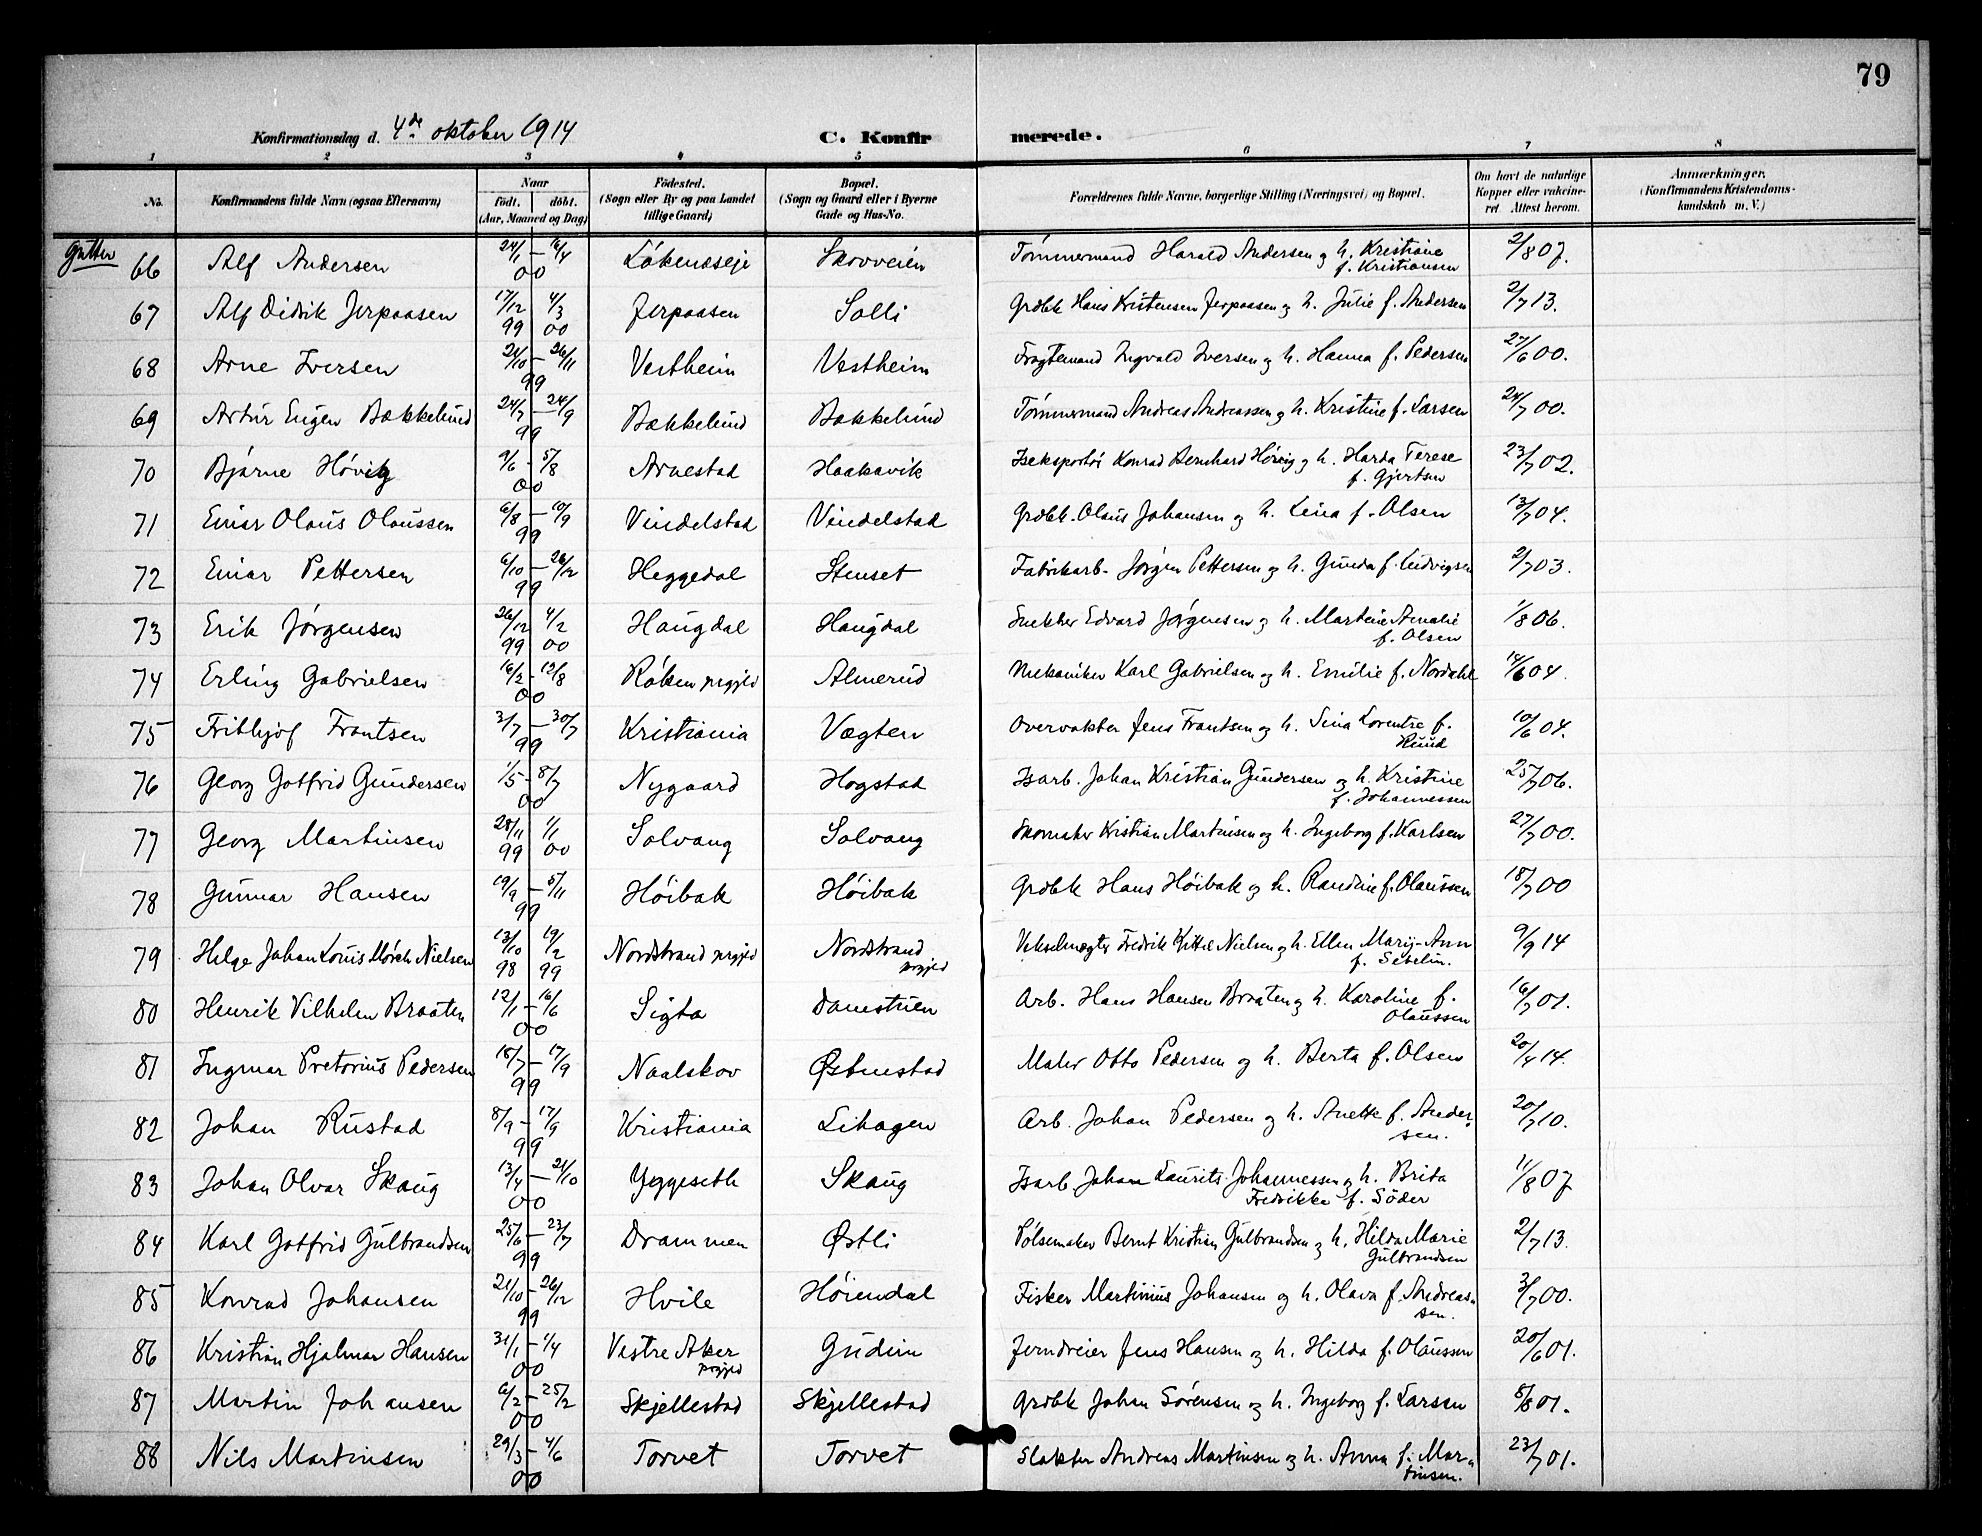 79
Konfirmationsdag d. 4de oktober 1914 C. Konfirmerede.
1 2 3 4 5 6 7 8
No. Konfirmandens fulde Navn (ogsaa Efternavn) Naar født. døbt. (Aar, Maaned og Dag) Fødested. (Sogn eller By og paa Landet tillige Gaard) Bopæl. (Sogn og Gaard eller i Byerne Gade og Hus-No. Forældrenes fulde Navne, borgerlige Stilling (Næringsvei) og Bopæl. Om havt de naturlige Kopper eller vakcineret. Attest herom. Anmærkninger. (Konfirmandens Kristendomskundskab m. V.)
Gutter
66 Alf Andersen 24/1 – 16/4 00 Løkenseje Skovveien Tømmermand Harald Andersen og h. Kristiane f. Kristiansen 2/8 07.
67 Alf Didrik Jerpaasen 17/12 99 4/3 00 Jerpaasen Solli Grdbk Hans Kristensen Jerpaasen og h. Julie f. Andersen 2/7 13.
68 Arne Iversen 21/10 – 26/11 99 Vestheim Vestheim Fragtemand Ingvald Iversen og h. Hanna f. Pedersen 27/6 00.
69 Artur Eugen Bækkelund 24/7 – 24/9 99 Bækkelund Bækkelund Tømmermand Andreas Andreassen og h. Kristine f. Larsen 24/7 00.
70 Bjarne Høvig 9/6 – 5/8 00 Arnestad Haakavik Iseksportør Konrad Bernhard Høvig og h. Harda Terese f. Gjertsen 23/7 02.
71 Einar Olaus Olaussen 6/8 – 10/9 99 Vindelstad Vindelstad Grdbk. Olaus Johansen og h. Lina f. Olsen 13/7 04.
72 Einar Pettersen 6/10 – 26/12 99 Heggedal Stenset Fabrikarb. Jørgen Pettersen og h. Gunda f. Ludvigsen 2/7 03.
73 Erik Jørgensen 26/12 99 4/2 00 Haugdal Haugdal Snekker Edvard Jørgensen og h. Martine Amalie f. Olsen 1/8 06.
74 Erling Gabrielsen 16/2 – 12/8 00 Røken prgjld Almerud Mekaniker Karl Gabrielsen og h. Emilie f. Nordahl 14/6 04.
75 Frithjof Frantsen 3/7 – 30/7 99 Kristiania Vægten Overvokter Jens Frantsen og h. Sina Lorentze f. Ruud 10/6 04.
76 Georg Gotfrid Gundersen 1/5 – 8/7 00 Nygaard Hogstad Isarb. Johan Kristian Gundersen og h. Kristine f. Johannessen 25/7 06.
77 Georg Martinsen 28/11 99 1/1 00 Solvang Solvang Skomaker Kristian Martinsen og h. Ingeborg f. Karlsen 27/7 00.
78 Gunnar Hansen 19/9 – 5/11 99 Høibak Høibak Grdbk Hans Høibak og h. Randine f. Olaussen 18/7 00
79 Helge Johan Louis Mørch Nielsen 13/10 98 19/2 99 Nordstrand prgjld Nordstrand prgjld Fredrik Nielsen og h. Ellen Marij-Ann f. Sebelin. 9/9 14
80 Henrik Vilhelm Braaten 12/1 – 16/6 00 Sigta Arb. Hans Hansen Braaten og h. Karoline f. Olaussen 16/7 01.
81 Ingmar Pretorius Pedersen 18/7 – 17/9 99 Naalskov Østenstad Maler Otto Pedersen og h. Berta f. Olsen 20/4 14.
82 Johan Rustad 8/9 – 17/9 99 Kristiania Lihagen Arb. Johan Pedersen og h. Anette f. Andersen. 20/7 10.
83 Johan Olvar Skaug 13/4 – 21/10 00 Yggeseth Skaug Isarb Johan Laurits Johannessen og h. Brita Fredrikke f. Söder 11/8 07
84 Karl Gotfrid Gulbrandsen 25/6 – 23/7 99 Drammen Østli Pølsemaker Bernt Kristian Gulbrandsen og h. Hilda Marie Gulbrandsen 2/7 13.
85 Konrad Johansen 21/10 – 26/12 99 Hvile Høiendal Fisker Martinius Johansen og h. Olava f. Andreassen. 3/7 00.
86 Kristian Hjalmar Hansen 31/1 – 1/4 00 Vestre Aker prgjld Gudim Jerndreier Jens Hansen og h. Hilda f. Olaussen 20/6 01.
87 Martin Johansen 6/2 – 25/2 00 Skjellestad Skjellestad Grdbk Johan Sørensen og h. Ingeborg f. Larsen 5/8 01.
88 Nils Martinsen 29/3 – 4/6 00 Torvet Torvet Slakter Andreas Martinsen og h. Anna f. Martinsen. 23/7 01.